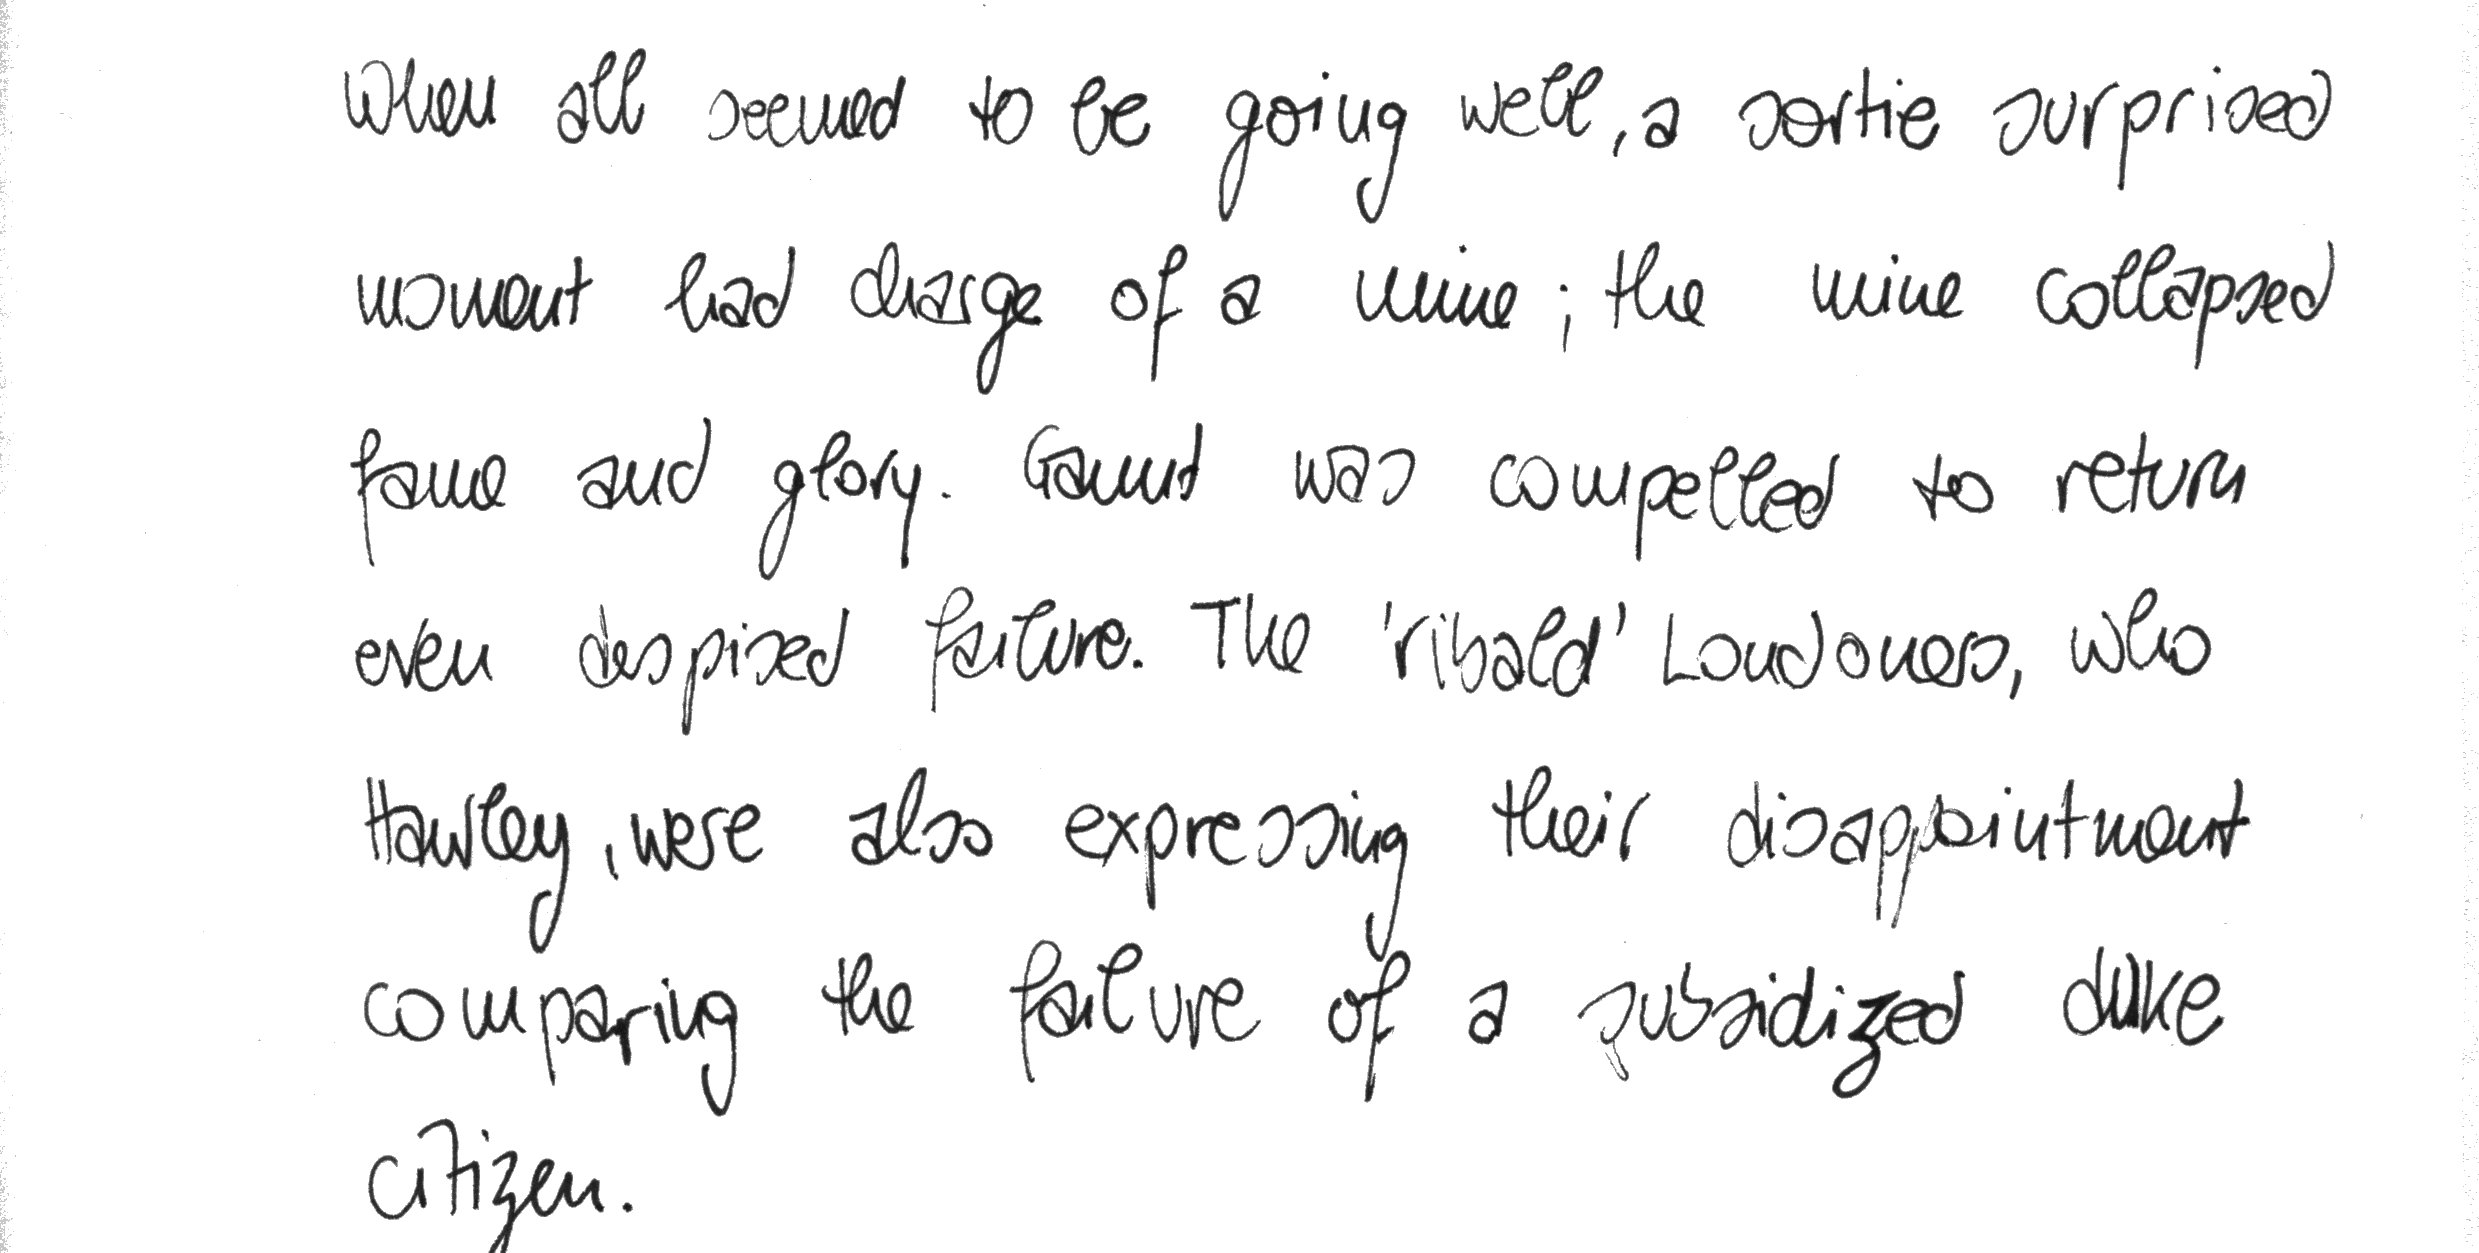 When all seemed to be going well, a sortie surprised
moment had charge of a mine; the mine collapsed
fame and glory. Gaunt was compelled to return
even despised failure. The 'ribald' Loudoness, who
Hawley, were also expressing their disappointment
comparing the failure of a subsidized duke
citizen.